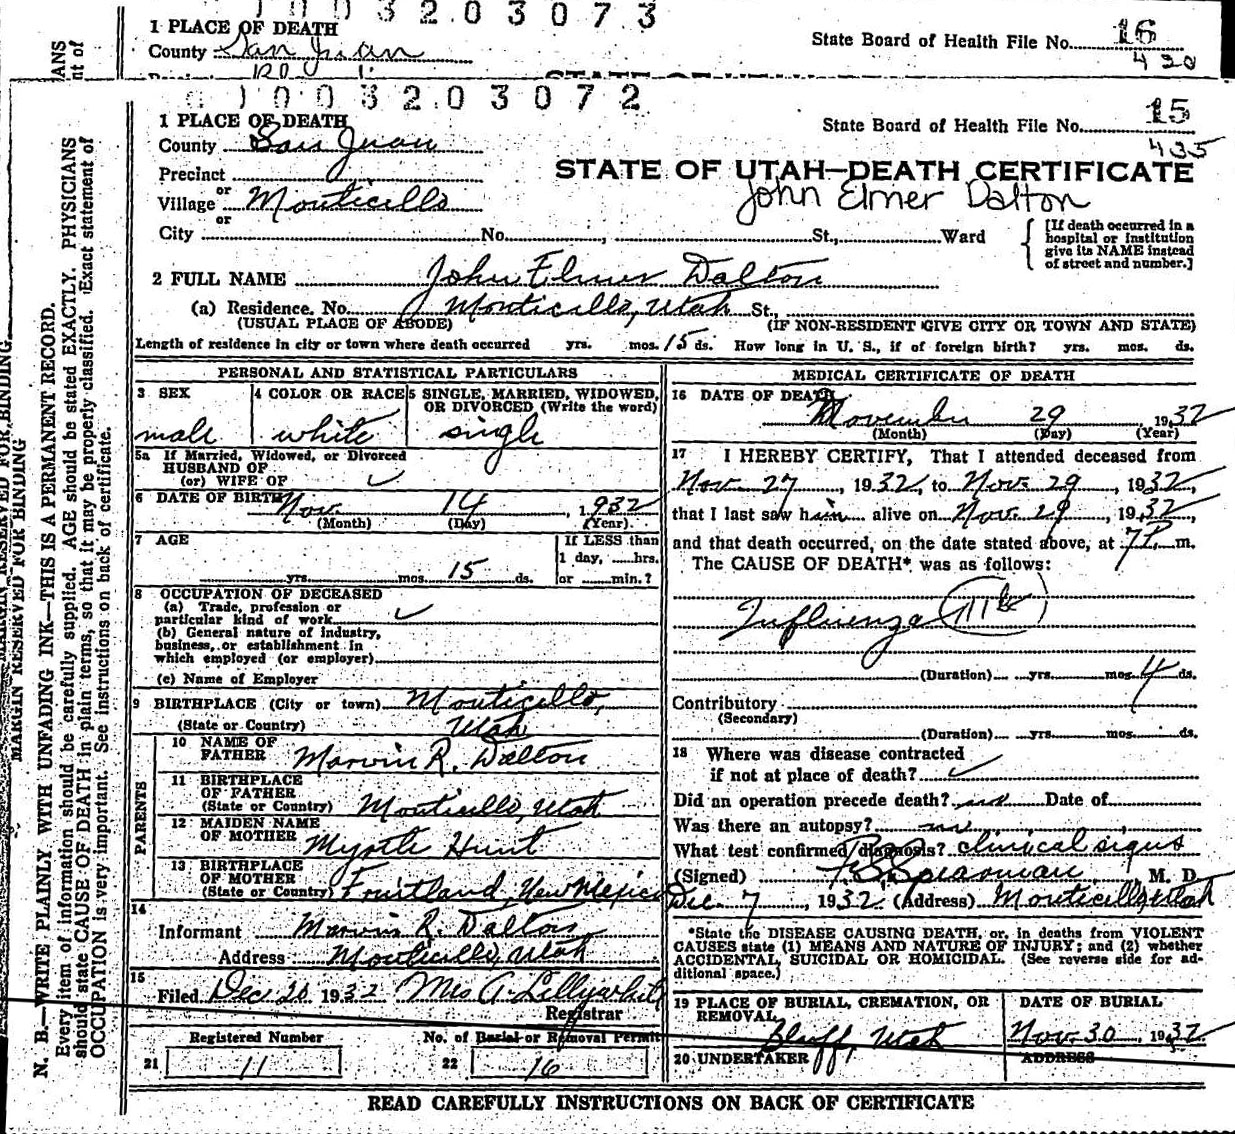 1003203073
1 PLACE OF DEATH
County San Juan
State Board of Health File No. 16
430
1003203072
15
1 PLACE OF DEATH
State Board of Health File No.
435
County San Juan
STATE OF UTAH—DEATH CERTIFICATE
Precinct
John Elmer Dalton
or
Village Monticello
or
City No. , St., Ward
[If death occurred in a
hospital or institution
give its NAME instead
of street and number.]
2 FULL NAME John Elmer Dalton
(a) Residence. No. Monticello, Utah St.,
(USUAL PLACE OF ABODE) (IF NON-RESIDENT GIVE CITY OR TOWN AND STATE)
Length of residence in city or town where death occurred yrs. mos. 15 ds. How long in U. S., if of foreign birth? yrs. mos. ds.
PERSONAL AND STATISTICAL PARTICULARS
3 SEX
male
4 COLOR OR RACE
white
5 SINGLE, MARRIED, WIDOWED,
OR DIVORCED (Write the word)
single
5a If Married, Widowed, or Divorced
HUSBAND OF
(or) WIFE OF ✓
6 DATE OF BIRTH Nov. 14, 1932
(Month) (Day) (Year)
7 AGE
yrs. mos. 15 ds.
If LESS than
1 day, hrs.
or min.?
8 OCCUPATION OF DECEASED
(a) Trade, profession or
particular kind of work ✓
(b) General nature of industry,
business, or establishment in
which employed (or employer)
(c) Name of Employer
9 BIRTHPLACE (City or town) Monticello,
(State or Country) Utah
PARENTS
10 NAME OF
FATHER Marvin R. Dalton
11 BIRTHPLACE
OF FATHER
(State or Country) Monticello, Utah
12 MAIDEN NAME
OF MOTHER Myrtle Hunt
13 BIRTHPLACE
OF MOTHER
(State or Country) Fruitland, New Mexico
14
Informant Marvin R. Dalton
Address Monticello, Utah
15
Filed Dec 20 1932 Mrs A. Lillywhite
Registrar
Registered Number
21 11
No. of Burial or Removal Permit
22 16
MEDICAL CERTIFICATE OF DEATH
16 DATE OF DEATH
November 29 1932
(Month) (Day) (Year)
17 I HEREBY CERTIFY, That I attended deceased from
Nov. 27, 1932, to Nov. 29, 1932,
that I last saw him alive on Nov. 29, 1932,
and that death occurred, on the date stated above, at 7P. m.
The CAUSE OF DEATH* was as follows:
Influenza 11b
(Duration) yrs. mos. 4 ds.
Contributory
(Secondary)
(Duration) yrs. mos. ds.
18 Where was disease contracted
if not at place of death? ✓
Did an operation precede death? no Date of
Was there an autopsy? no
What test confirmed diagnosis? clinical signs
(Signed) Spearman, M. D.
Dec. 7, 1932. (Address) Monticello, Utah
*State the DISEASE CAUSING DEATH, or, in deaths from VIOLENT
CAUSES state (1) MEANS AND NATURE OF INJURY; and (2) whether
ACCIDENTAL, SUICIDAL OR HOMICIDAL. (See reverse side for ad-
ditional space.)
19 PLACE OF BURIAL, CREMATION, OR
REMOVAL
Bluff, Utah
DATE OF BURIAL
Nov. 30, 1932
20 UNDERTAKER
ADDRESS
READ CAREFULLY INSTRUCTIONS ON BACK OF CERTIFICATE
MARGIN RESERVED FOR BINDING
MARGIN RESERVED FOR BINDING
N. B.—WRITE PLAINLY WITH UNFADING INK—THIS IS A PERMANENT RECORD.
Every item of information should be carefully supplied. AGE should be stated EXACTLY. PHYSICIANS
should state CAUSE OF DEATH in plain terms, so that it may be properly classified. Exact statement of
OCCUPATION is very important. See instructions on back of certificate.